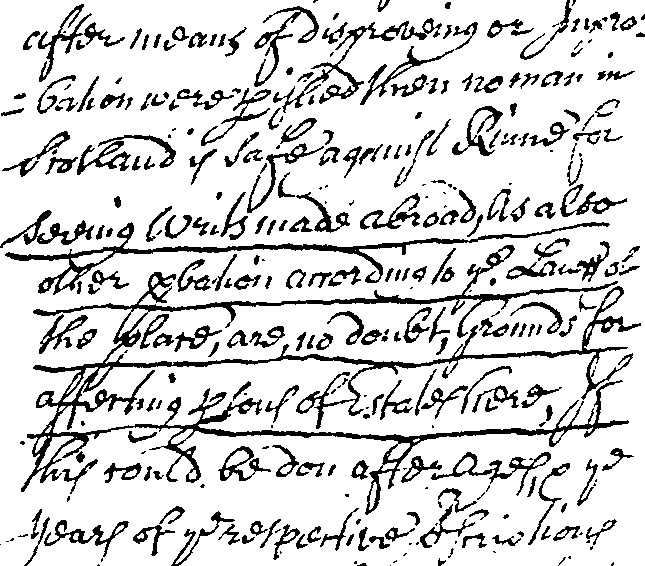 after means of disproveing or Impro-
=bation were perished then no man in
Scotland is safe against Ruine for
seeing writs made abroad, As also
other probation according to ye. Lawes of
the place, are, no doubt, Grounds for
affecting persons of Estates here, If
this could be don after ages, & ye
years of ye respective